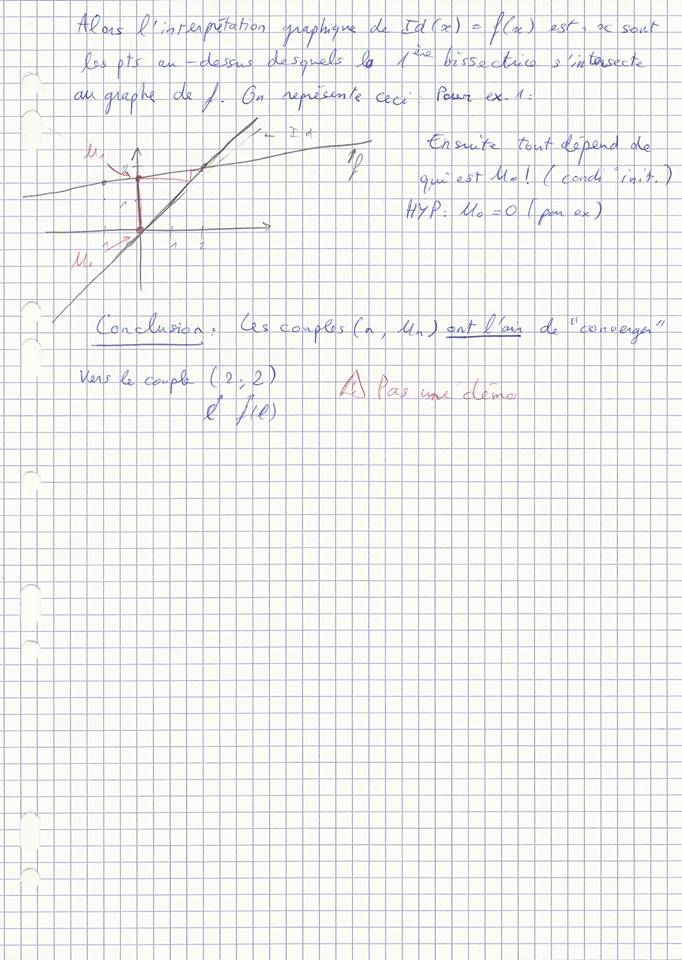 Alors l'interprétation graphique de Id(x) = f(x) est : x sont
les pts au-dessus desquels la 1ère bissectrice s'intersecte
au graphe de f. On représente ceci. Pour ex. 1 :
← Id
f
u₁
2
1
1
1
2
u₀
Ensuite tout dépend de
qui est u₀ ! (condi° init.)
HYP : u₀ = 0 (par ex)
Conclusion : Les couples (n, uₙ) ont l'air de "converger"
vers le couple (2; 2)
ℓ f(ℓ)
⚠ Pas une démo